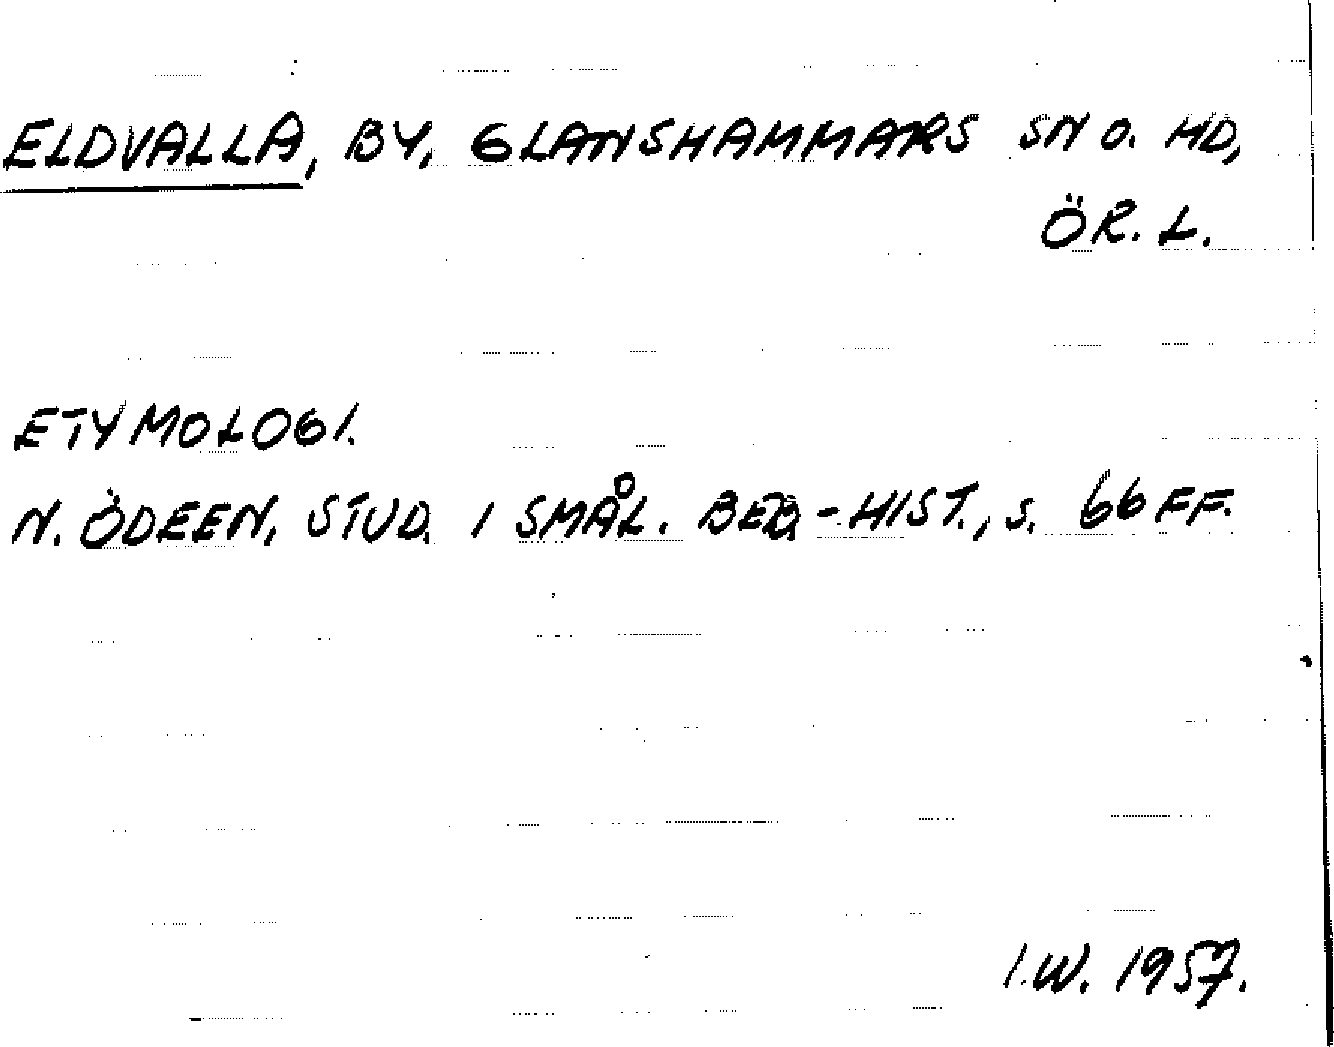 ELDVALLA, BY, GLANSHAMMARS SN O. HD,
ÖR. L.
ETYMOLOGI.
N. ÖDEEN, STUD. I SMÅL. BEB.-HIST., S. 66 FF.
I.W. 1957.